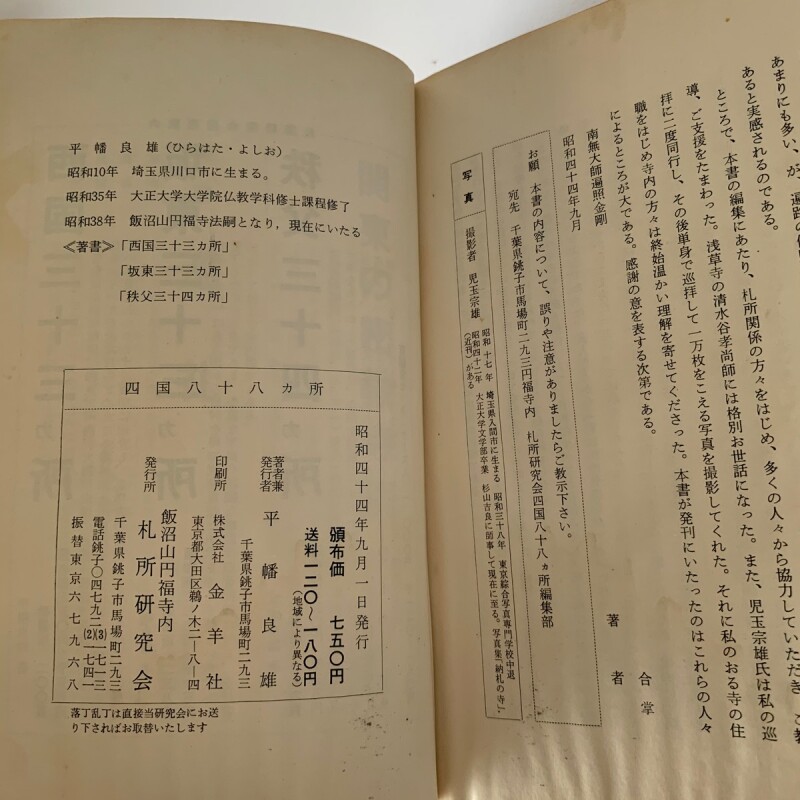 あまりにも多い、が、遍路の
あると実感されるのである。
ところで、本書の編集にあたり、札所関係の方々をはじめ、多くの人々から協力していただき、ご教
導、ご支援をたまわった。浅草寺の清水谷孝尚師には格別お世話になった。また、児玉宗雄氏は私の巡
拝に二度同行し、その後単身で巡拝して一万枚をこえる写真を撮影してくれた。それに私のおる寺の住
職をはじめ寺内の方々は終始温かい理解を寄せてくださった。本書が発刊にいたったのはこれらの人々
によるところが大である。感謝の意を表する次第である。
南無大師遍照金剛
合掌
昭和四十四年九月
著者
お願 本書の内容について、誤りや注意がありましたらご教示下さい。
宛先 千葉県銚子市馬場町二九三円福寺内 札所研究会四国八十八ヵ所編集部
写真
撮影者 児玉宗雄
昭和十七年 埼玉県入間市に生まる 昭和三十八年 東京綜合写真専門学校中退
昭和四十二年 大正大学文学部卒業 杉山吉良に師事して現在に至る。写真集「納札の寺」、
(近刊)がある
平幡良雄(ひらはた・よしお)
昭和10年 埼玉県川口市に生まる。
昭和35年 大正大学大学院仏教学科修士課程修了
昭和38年 飯沼山円福寺法嗣となり，現在にいたる
≪著書≫「西国三十三ヵ所」
「坂東三十三ヵ所」
「秩父三十四ヵ所」
四国八十八ヵ所
昭和四十四年九月一日発行
頒布価 七五〇円
送料 一二〇〜一八〇円
(地域により異なる)
著者兼
発行者 平幡良雄
千葉県銚子市馬場町二九三
印刷所 株式会社 金羊社
東京都大田区鵜ノ木二-八-四
飯沼山円福寺内
発行所 札所研究会
千葉県銚子市馬場町二九三
電話銚子〇四七九二(2)(3)一七一三 一七四一
振替東京六七九六八
落丁乱丁は直接当研究会にお送
り下さればお取替いたします